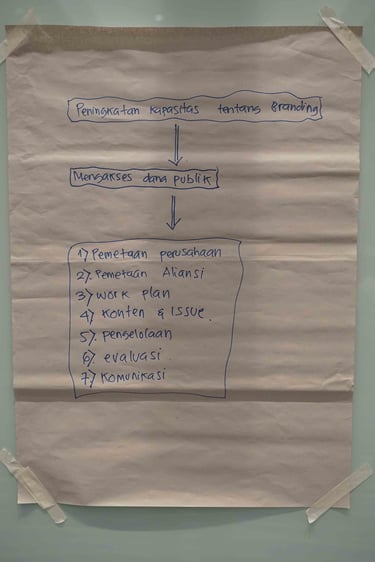 Peningkatan Kapasitas tentang Branding
Mengakses dana publik
1) Pemetaan perusahaan
2) Pemetaan Aliansi
3) work plan
4) Konten & Issue.
5) pengelolaan
6) evaluasi.
7) Komunikasi